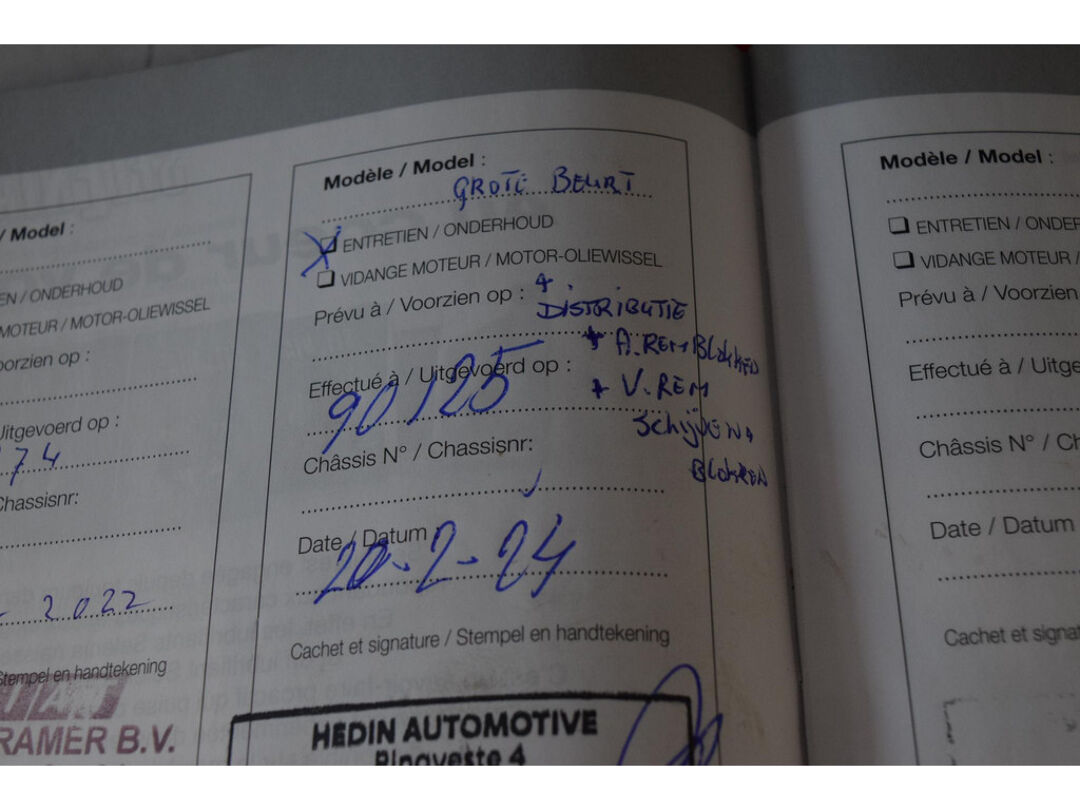 / Model :
EN / ONDERHOUD
MOTEUR / MOTOR-OLIEWISSEL
oorzien op :
Uitgevoerd op :
74
Chassisnr:
2022
Stempel en handtekening
RAMER B.V.
Modèle / Model :
GROTE BEURT
X ENTRETIEN / ONDERHOUD
VIDANGE MOTEUR / MOTOR-OLIEWISSEL
Prévu à / Voorzien op : +
DISTRIBUTIE
+ A.REMBLOKKEN
Effectué à / Uitgevoerd op :
90125
+ V.REM
SCHIJVEN
BLOKKEN
Châssis N° / Chassisnr:
Date / Datum
20-2-24
Cachet et signature / Stempel en handtekening
HEDIN AUTOMOTIVE
Ringveste 4
Modèle / Model :
ENTRETIEN / ONDER
VIDANGE MOTEUR /
Prévu à / Voorzien
Effectué à / Uitge
Châssis N° / Ch
Date / Datum
Cachet et signat